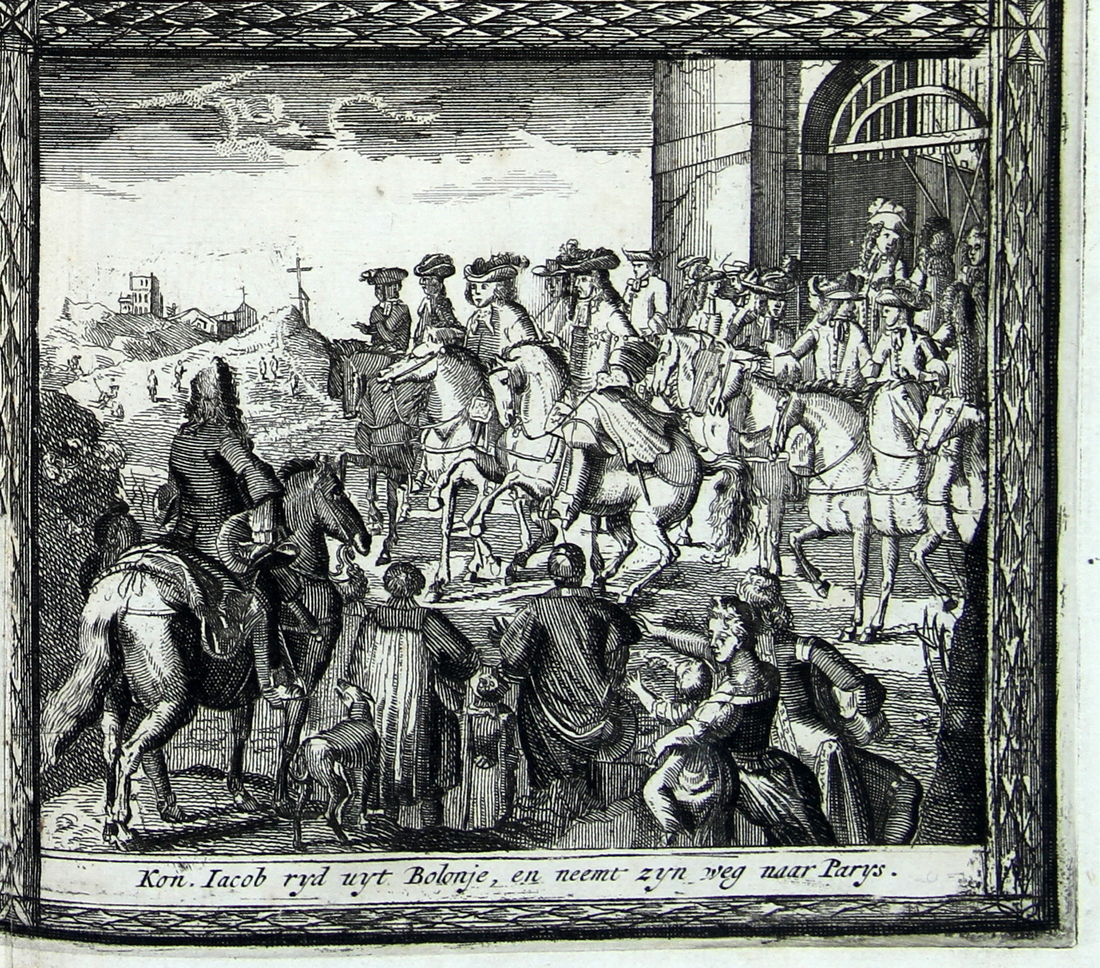 Kon. Iacob ryd uyt Bolonje, en neemt zyn weg naar Parys.